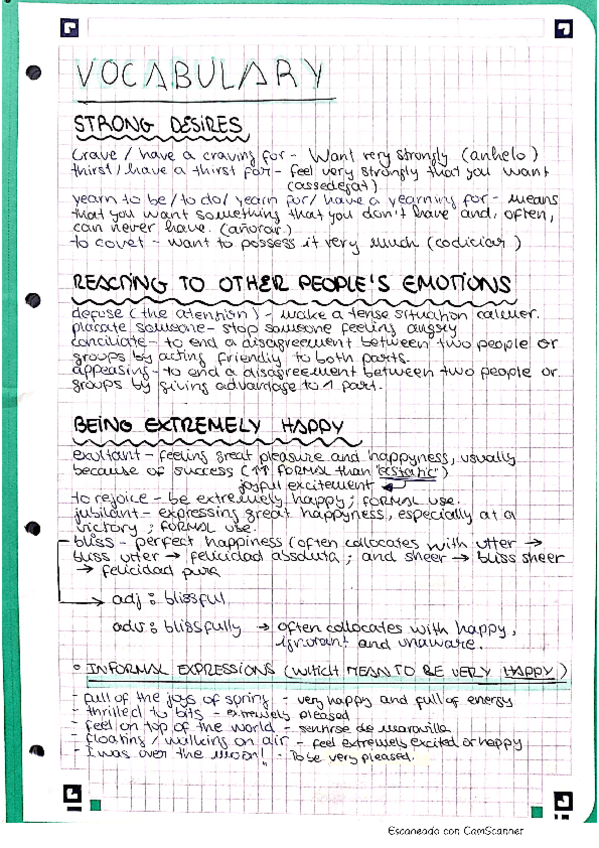 VOCABULARY
STRONG DESIRES
Crave / have a craving for - Want very strongly (anhelo)
thirst / have a thirst for - feel very strongly that you want
(assedegat)
yearn to be / to do / yearn for / have a yearning for - means
that you want something that you don't have and, often,
can never have. (añorar)
to covet - want to possess it very much (codiciar)
REACTING TO OTHER PEOPLE'S EMOTIONS
defuse (the atention) - make a tense situation calmer.
placate someone - stop someone feeling angry
conciliate - to end a disagreement between two people or
groups by acting friendly to both parts.
appeasing - to end a disagreement between two people or
groups by giving advantage to 1 part.
BEING EXTREMELY HAPPY
exultant - feeling great pleasure and happyness, usually
because of success (↑↑ FORMAL than "ecstatic")
joyful excitement ←
to rejoice - be extremely happy; FORMAL USE.
jubilant - expressing great happyness, especially at a
victory; FORMAL USE.
bliss - perfect happiness (often collocates with utter →
bliss utter → felicidad absoluta; and sheer → bliss sheer
→ felicidad pura
→ adj: blissful
adv: blissfully → often collocates with happy,
ignorant and unaware.
° INFORMAL EXPRESSIONS (WHICH MEAN TO BE VERY HAPPY)
- full of the joys of spring - very happy and full of energy
- thrilled to bits - extremely pleased
- feel on top of the world - sentirse de maravilla
- floating / walking on air - feel extremely excited or happy
- I was over the moon! - To be very pleased.
Escaneado con CamScanner